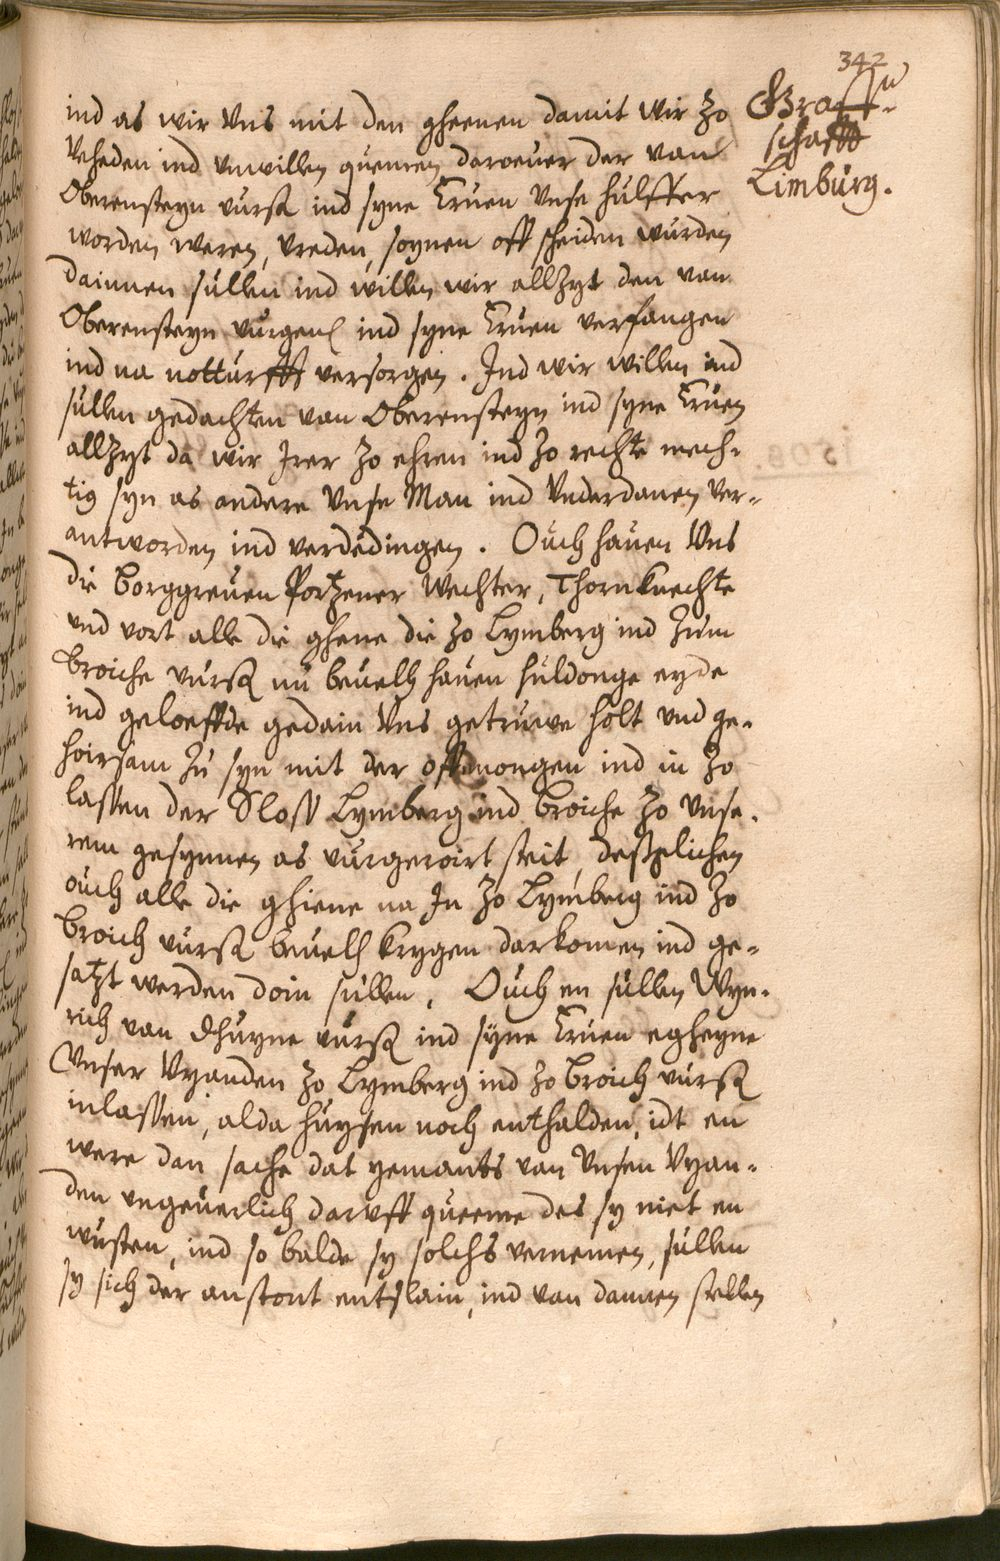 342
Graff-
schafft
Limburg.
ind as wir Uns mit den gheenen damit wir zo
Veheden ind unwillen quemen daroever der van
Oberensteyn vursß ind syne Eruen Unse hulffer
worden weren, vreden, soynen off scheiden wurden
dainnen sullen ind willen wir allzyt den van
Oberensteyn vurgenß ind syne Eruen verfangen
ind na notturfft versorgen. Ind wir willen ind
sullen gedachten van Oberensteyn ind syne Eruen
allzyt da wir Irer zo ehren ind zo rechte mech-
tig syn as andere Unse Man ind Underdanen ver-
antworden ind verdedingen. Ouch hauen Uns
die Borggreuen Portzener Wechter, Thornknechte
und vort alle die ghene die zo Lymberg ind zum
broiche vursß nu beuelh hauen huldonge eyde
ind geloeffde gedain Uns getruwe holt und ge-
hoirsam zu syn mit der offenongen ind in zo
lassen der Sloss Lymberg ind broiche zo Unse-
rem gesynnen as vurgeroirt steit, deßgelichen
ouch alle die ghiene na In zo Lymberg ind zo
broich vursß beuelh krygen darkomen ind ge-
satzt werden doin sullen. Ouch en sullen Wyn-
rich van Dhuyne vursß ind syne Eruen egheyne
Unser Vyanden zo Lymberg ind zo broich vursß
inlassen, alda huysen noch enthalden, idt en
were dan sache dat yemants van Unsen Vyan-
den ungeuerlich daruff queeme des sy niet en
wusten, ind so balde sy solchs vernemen, sullen
sy sich der anstont entslain, ind van dannen stellen